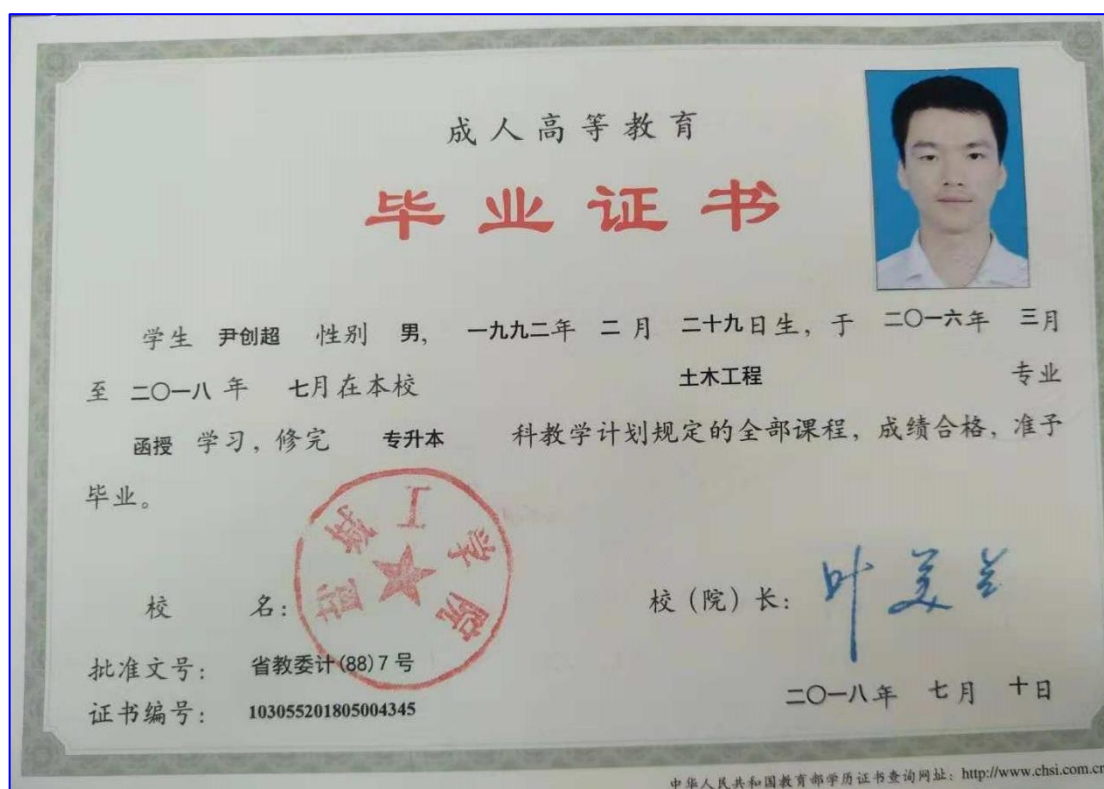 成人高等教育
毕业证书
学生 尹创超 性别 男, 一九九二年 二月 二十九日生, 于 二〇一六年 三月
至 二〇一八年 七月在本校 土木工程 专业
函授 学习, 修完 专升本 科教学计划规定的全部课程, 成绩合格, 准予
毕业。
校 名:
校(院)长: 叶美兰
批准文号: 省教委计(88)7号
证书编号: 103055201805004345
二〇一八年 七月 十日
中华人民共和国教育部学历证书查询网址: http://www.chsi.com.cn